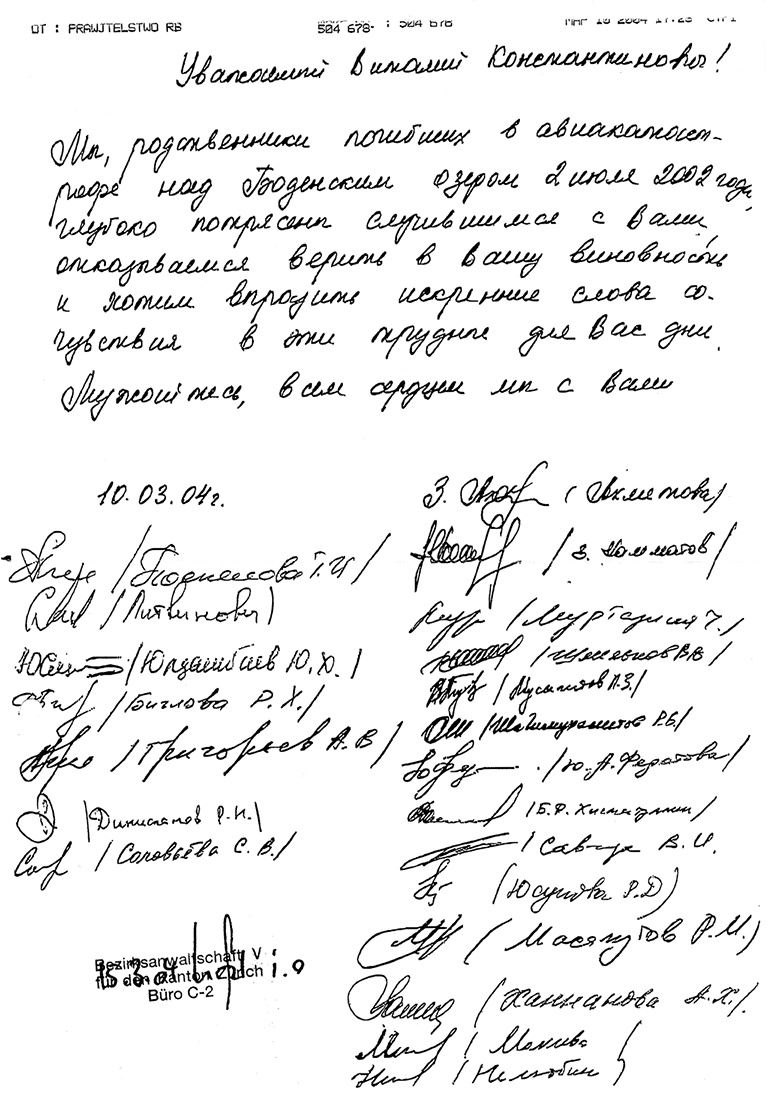 OT : PRAWJTELSTWO RB
504 678 : 504 678 МАР 10 2004 17:25 СТР1
Уважаемый Виталий Константинович!
Мы, родственники погибших в авиакатаст-
рофе над Боденским озером 2 июля 2002 года,
глубоко потрясены случившимся с Вами,
отказываемся верить в Вашу виновность
и хотим выразить искренние слова со-
чувствия в эти трудные для Вас дни.
Мужайтесь, всем сердцем мы с Вами
10.03.04г.
/Поднелова Г.И/
/Литвинович/
/Юлдашбаев Ю.Ю./
/Биглова Р.Х./
/Григорьев А.В/
/Динисламов Р.Н./
/Соловьёва С.В./
З. (Ахметова)
/З. Хамматов/
/Муртазина
/Шмельков ВВ/
/Мусаллятов
/Шагимухаметов Р.Б/
/Ю.А.Федотова/
/Б.Ф.Хисматуллин/
/Савчук В.И.
(Юсупова Р.Д)
(Масягутов Р.М.)
/Ханнанова А.Х./
/
/Нелюбин
Bezirksanwaltschaft V
15.3.04 i.O
für den Kanton Zürich
Büro C-2